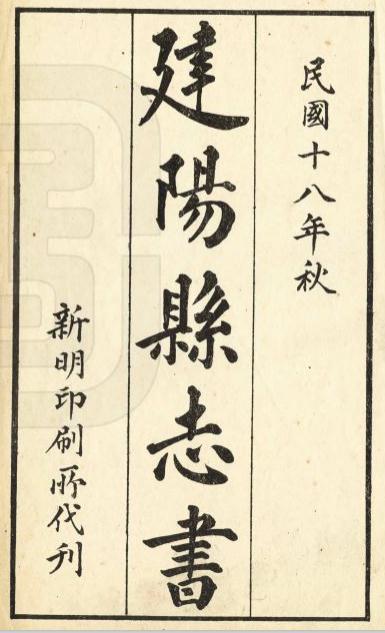 民國十八年秋
建陽縣志書
新明印刷所代刋